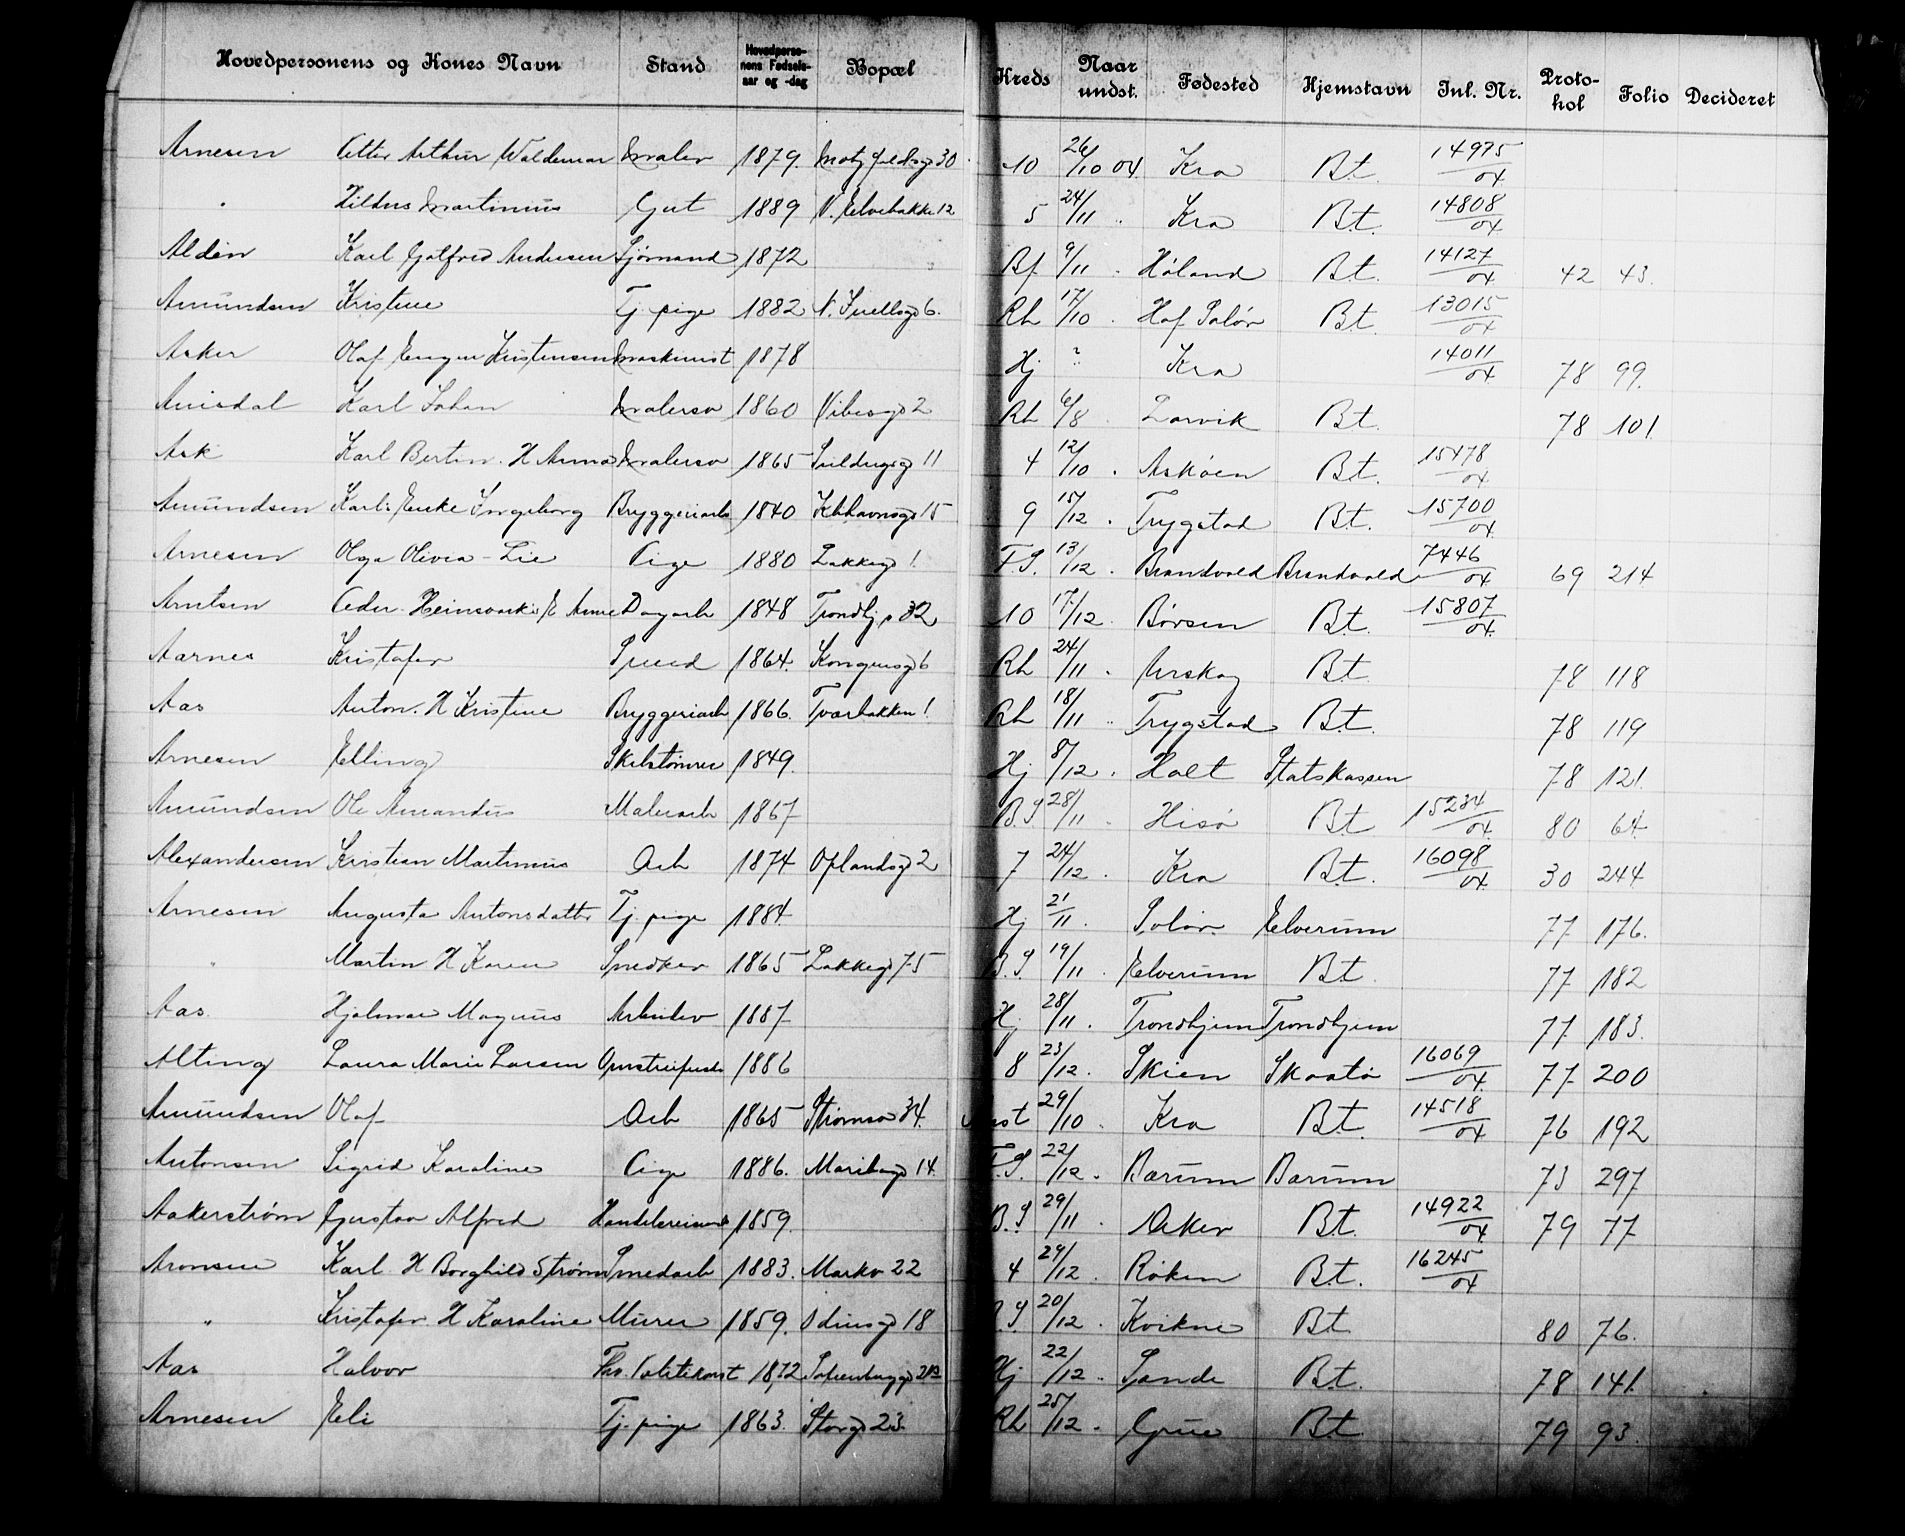 Hovedpersonens og Kones Navn Stand Hovedpersonens Fødsels-aar og -dag Bopæl Kreds Naar undst. Fødested Hjemstavn Jnl. Nr. Protokol Folio Decideret
Arnesen Arthur Waldemar Maler 1879. 30 10 26/10 04 Kra Bt. 14975/04
" Martinius Gut 1889 N. Elvebakke 12 5 24/11 . Kra Bt. 14808/04
Aldén Karl Gotfred Andersen Sjømand 1872 Bf 9/11 . Høland Bt. 14127/04 42 43.
Amundsen Kristine Tj. pige 1882 N. Snellsgd 6. Rh 17/10 . Hof Solør Bt. 13015/04
Asker Olaf Eugen Kristensen Maskinist 1878 Hj ? Kra 14011/04 78 99.
Karl Johan Malersv 1860 Vibesgd 2 Rh 6/8 Larvik Bt. 78 101.
Ask Karl Bertin. H Anna Malersv 1865 11 4 12/10 . Askøen Bt. 15478/04
Amundsen Ingeborg Bryggeriarb 1840 Kbhavnsgd 15 9 15/12 . Trygstad Bt. 15700/04
Arnesen Olga Olivia - Lie Pige 1880 Lakkegd 1. F.S. 13/12 . Brandvold Brandvold 7446/04 69 214
Arntsen Peder E Anne Dagarb 1848 Trondhj. 32 10 17/12 . Børsen Bt. 15807/04
Aarnes Kristofer Smed 1864. Kongensgd 6 Rh 24/11 . Urskog Bt. 78 118
Aas Anton. H Kristine Bryggeriarb 1866. Tværbakken 1. Rh 18/11 . Trygstad Bt. 78 119
Arnesen Elling Skibstømrer 1849. Hj 8/12 . Holt Statskassen 78 121.
Amundsen Ole Amandus Malerarb 1867 B.S 28/11 . Hisø Bt. 15234/04 80 64
Alexandersen Kristian Martinius Arb 1874 Oplandsgd 2 7 24/12 . Kra Bt. 16098/04 30 244
Arnesen Augusta Antonsdatter Tj. pige 1884. Hj 21/11 . Solør Elverum 77 176.
" Martin H Karen Snedker 1865 Lakkegd 75 B.S. 19/11 . Elverum Bt. 77 182
Aas. Hjalmar Magnus Arbeider 1887 Hj. 28/11 . Trondhjem Trondhjem 77 183.
Alting Laura Marie Larsen 1886 8 23/12 . Skien Skaatø 16069/04 77 200
Amundsen Olaf Arb 1865 Strømsv 34. 29/10 . Kra Bt. 14518/04 76 192
Antonsen Sigrid Karoline Pige 1886. Maribogd 14. F.S. 22/12 . Bærum Bærum 73 297
Aakerstrøm Gustav Alfred Handelsreisende 1859. B.S 29/11 . Aker Bt. 14922/04 79 77
Aronsen Karl H Borghild Strøm Smedarb 1883. Markv 22 4 29/12 . Røken Bt. 16245/04
" Kristofer H Karoline Murer 1859. Odinsgd 18 B.S 20/12 . Kvikne Bt. 80 76.
Aas Halvor Fhv. Politikonst 1872 Sofienbergd Hj 22/12 . Sande Bt. 78 141.
Arnesen Eli Tj. pige 1863. Storgd 23. Rh 25/12 . Grue Bt. 79 93.